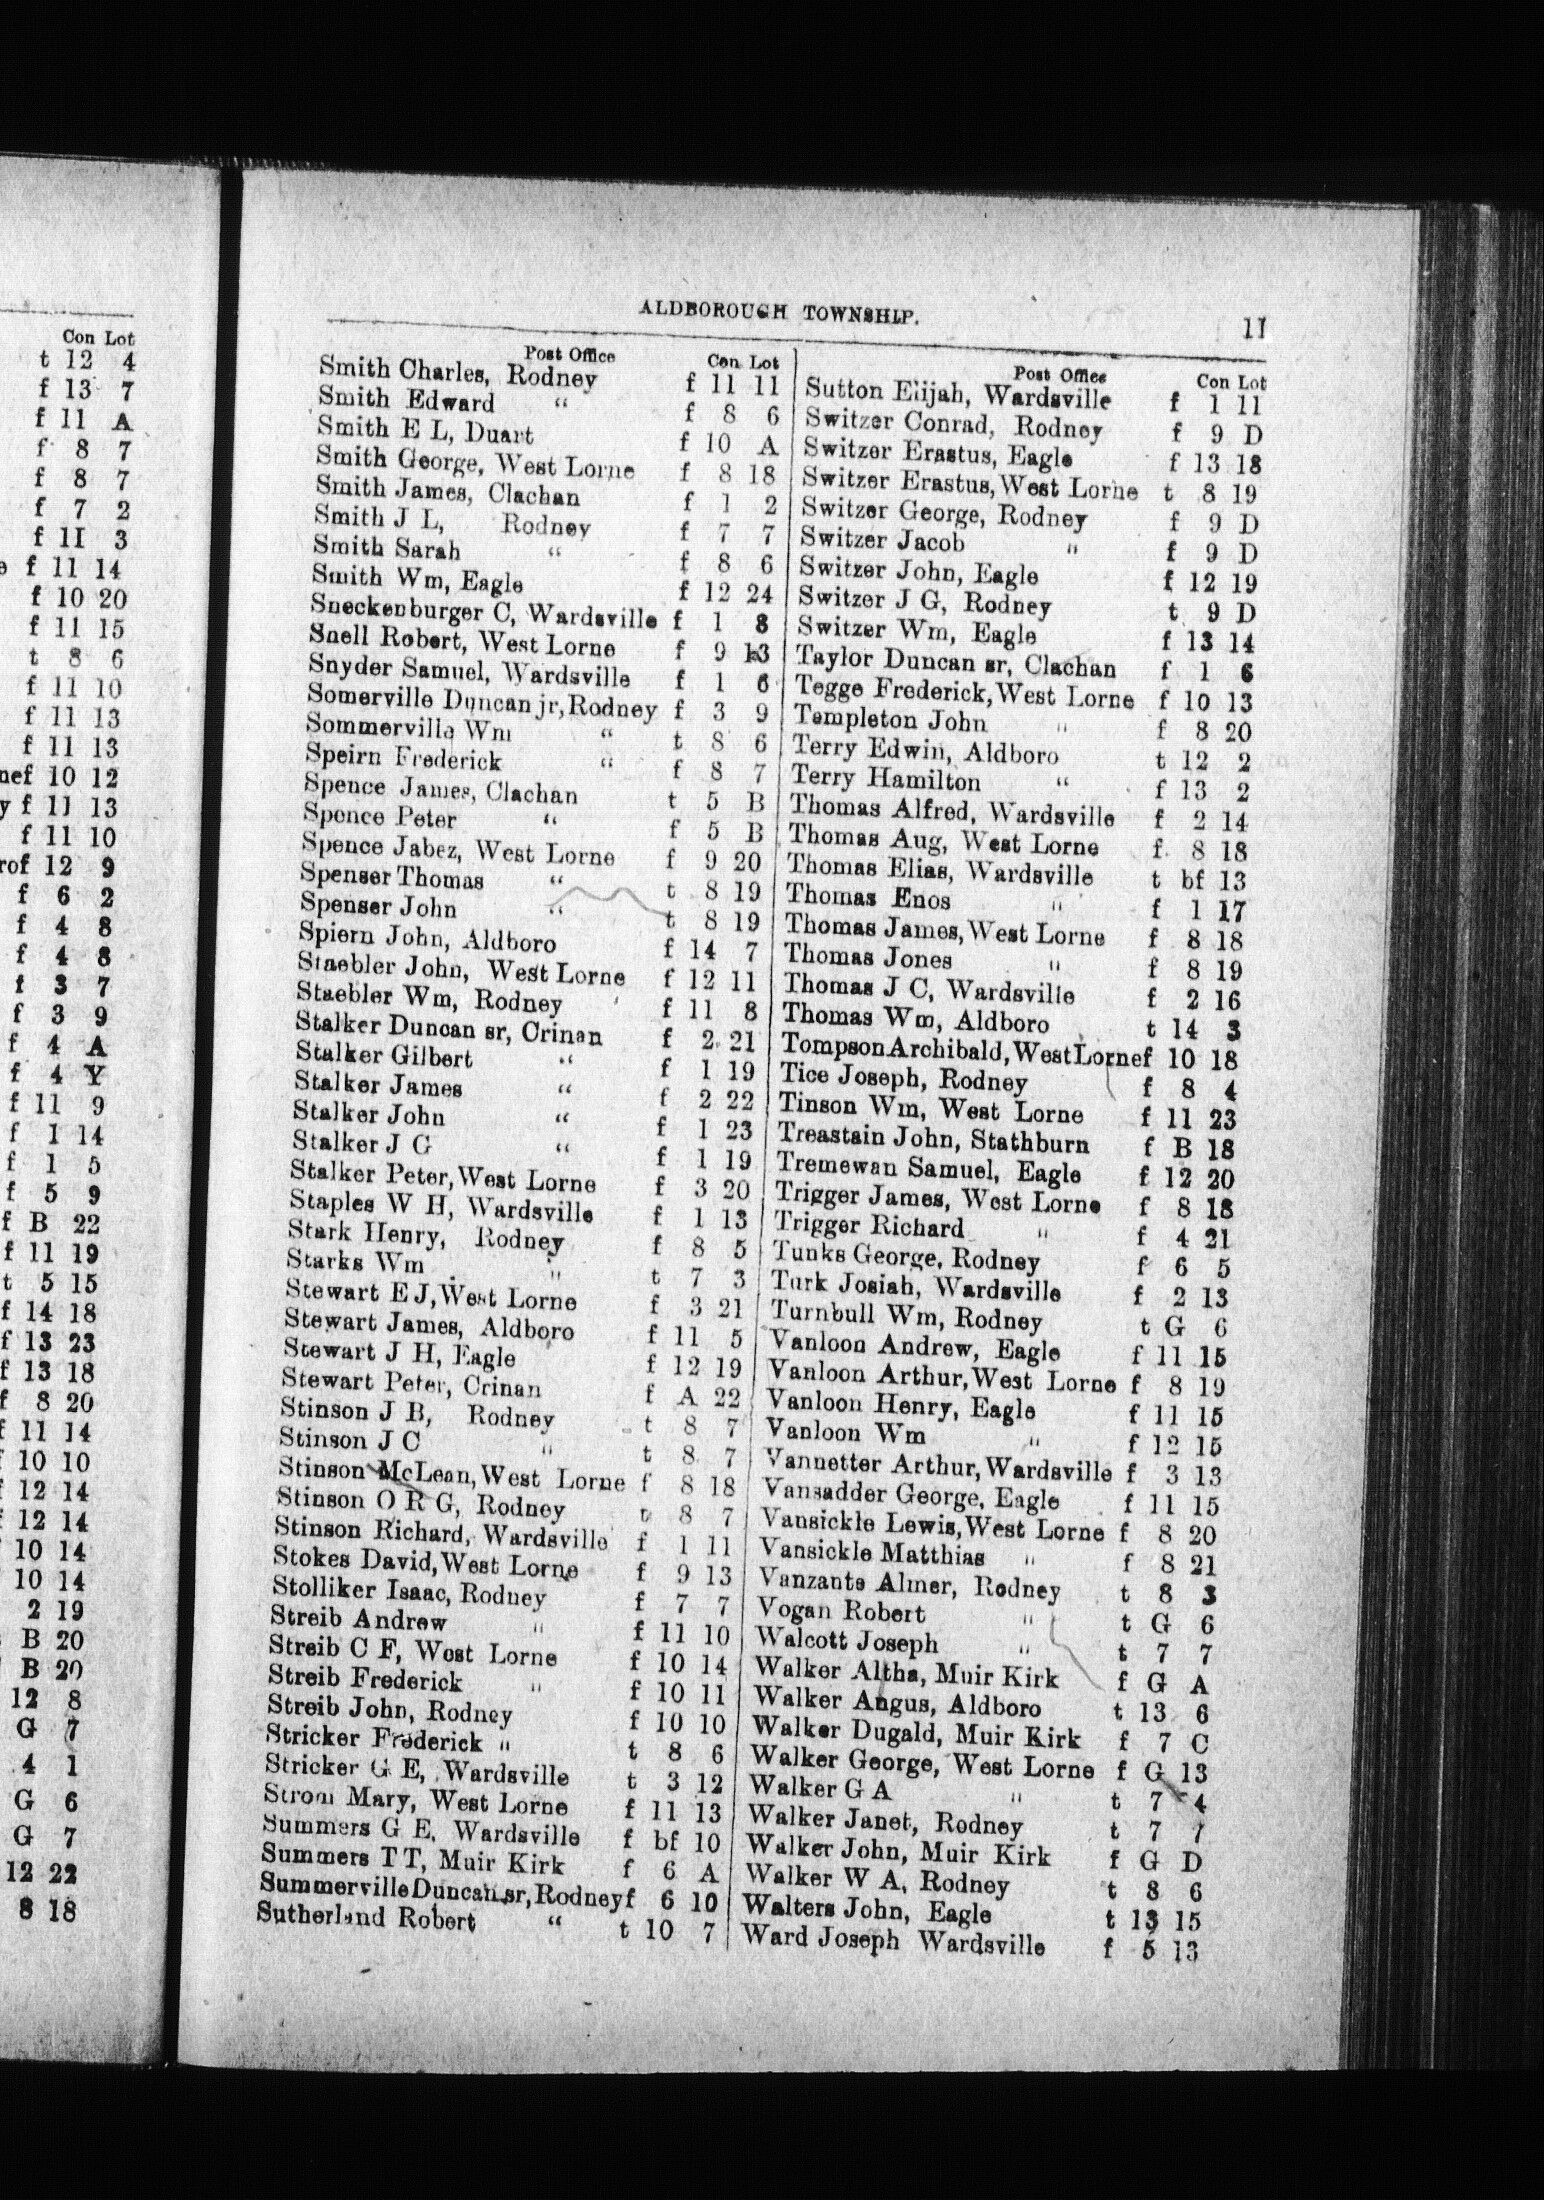 Con Lot
t 12 4
f 13 7
f 11 A
f 8 7
f 8 7
f 7 2
f 11 3
e f 11 14
f 10 20
f 11 15
t 8 6
f 11 10
f 11 13
f 11 13
nef 10 12
y f 11 13
f 11 10
rof 12 9
f 6 2
f 4 8
f 4 8
f 3 7
f 3 9
f 4 A
f 4 Y
f 11 9
f 1 14
f 1 5
f 5 9
f B 22
f 11 19
t 5 15
f 14 18
f 13 23
f 13 18
f 8 20
f 11 14
f 10 10
f 12 14
f 12 14
10 14
10 14
2 19
B 20
B 20
12 8
G 7
4 1
G 6
G 7
12 22
8 18
ALDBOROUGH TOWNSHIP.
11
Post Office Con Lot
Smith Charles, Rodney f 11 11
Smith Edward " f 8 6
Smith E L, Duart f 10 A
Smith George, West Lorne f 8 18
Smith James, Clachan f 1 2
Smith J L, Rodney f 7 7
Smith Sarah " f 8 6
Smith Wm, Eagle f 12 24
Sneckenburger C, Wardsville f 1 8
Snell Robert, West Lorne f 9 13
Snyder Samuel, Wardsville f 1 6
Somerville Duncan jr, Rodney f 3 9
Sommerville Wm " t 8 6
Speirn Frederick " f 8 7
Spence James, Clachan t 5 B
Spence Peter " f 5 B
Spence Jabez, West Lorne f 9 20
Spenser Thomas " t 8 19
Spenser John " t 8 19
Spiern John, Aldboro f 14 7
Staebler John, West Lorne f 12 11
Staebler Wm, Rodney f 11 8
Stalker Duncan sr, Crinan f 2 21
Stalker Gilbert " f 1 19
Stalker James " f 2 22
Stalker John " f 1 23
Stalker J G " f 1 19
Stalker Peter, West Lorne f 3 20
Staples W H, Wardsville f 1 13
Stark Henry, Rodney f 8 5
Starks Wm " t 7 3
Stewart E J, West Lorne f 3 21
Stewart James, Aldboro f 11 5
Stewart J H, Eagle f 12 19
Stewart Peter, Crinan f A 22
Stinson J B, Rodney t 8 7
Stinson J C " t 8 7
Stinson McLean, West Lorne f 8 18
Stinson O R G, Rodney 8 7
Stinson Richard, Wardsville f 1 11
Stokes David, West Lorne f 9 13
Stolliker Isaac, Rodney f 7 7
Streib Andrew " f 11 10
Streib C F, West Lorne f 10 14
Streib Frederick " f 10 11
Streib John, Rodney f 10 10
Stricker Frederick " t 8 6
Stricker G E, Wardsville t 3 12
Strom Mary, West Lorne f 11 13
Summers G E, Wardsville f bf 10
Summers T T, Muir Kirk f 6 A
Summerville Duncan sr, Rodney f 6 10
Sutherland Robert " t 10 7
Post Office Con Lot
Sutton Elijah, Wardsville f 1 11
Switzer Conrad, Rodney f 9 D
Switzer Erastus, Eagle f 13 18
Switzer Erastus, West Lorne t 8 19
Switzer George, Rodney f 9 D
Switzer Jacob " f 9 D
Switzer John, Eagle f 12 19
Switzer J G, Rodney t 9 D
Switzer Wm, Eagle f 13 14
Taylor Duncan sr, Clachan f 1 6
Tegge Frederick, West Lorne f 10 13
Templeton John " f 8 20
Terry Edwin, Aldboro t 12 2
Terry Hamilton " f 13 2
Thomas Alfred, Wardsville f 2 14
Thomas Aug, West Lorne f 8 18
Thomas Elias, Wardsville t bf 13
Thomas Enos " f 1 17
Thomas James, West Lorne f 8 18
Thomas Jones " f 8 19
Thomas J C, Wardsville f 2 16
Thomas Wm, Aldboro t 14 3
Tompson Archibald, West Lorne f 10 18
Tice Joseph, Rodney f 8 4
Tinson Wm, West Lorne f 11 23
Treastain John, Stathburn f B 18
Tremewan Samuel, Eagle f 12 20
Trigger James, West Lorne f 8 18
Trigger Richard " f 4 21
Tunks George, Rodney f 6 5
Turk Josiah, Wardsville f 2 13
Turnbull Wm, Rodney t G 6
Vanloon Andrew, Eagle f 11 15
Vanloon Arthur, West Lorne f 8 19
Vanloon Henry, Eagle f 11 15
Vanloon Wm " f 12 15
Vannetter Arthur, Wardsville f 3 13
Vansadder George, Eagle f 11 15
Vansickle Lewis, West Lorne f 8 20
Vansickle Matthias " f 8 21
Vanzante Almer, Rodney t 8 3
Vogan Robert " t G 6
Walcott Joseph " t 7 7
Walker Altha, Muir Kirk f G A
Walker Angus, Aldboro t 13 6
Walker Dugald, Muir Kirk f 7 C
Walker George, West Lorne f G 13
Walker G A " t 7 4
Walker Janet, Rodney t 7 7
Walker John, Muir Kirk f G D
Walker W A, Rodney t 8 6
Walters John, Eagle t 13 15
Ward Joseph Wardsville f 5 13